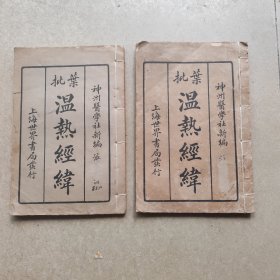 葉批
温熱經緯
神州醫學社新編
上海世界書局發行
葉批
温熱經緯
神州醫學社新編
上海世界書局發行